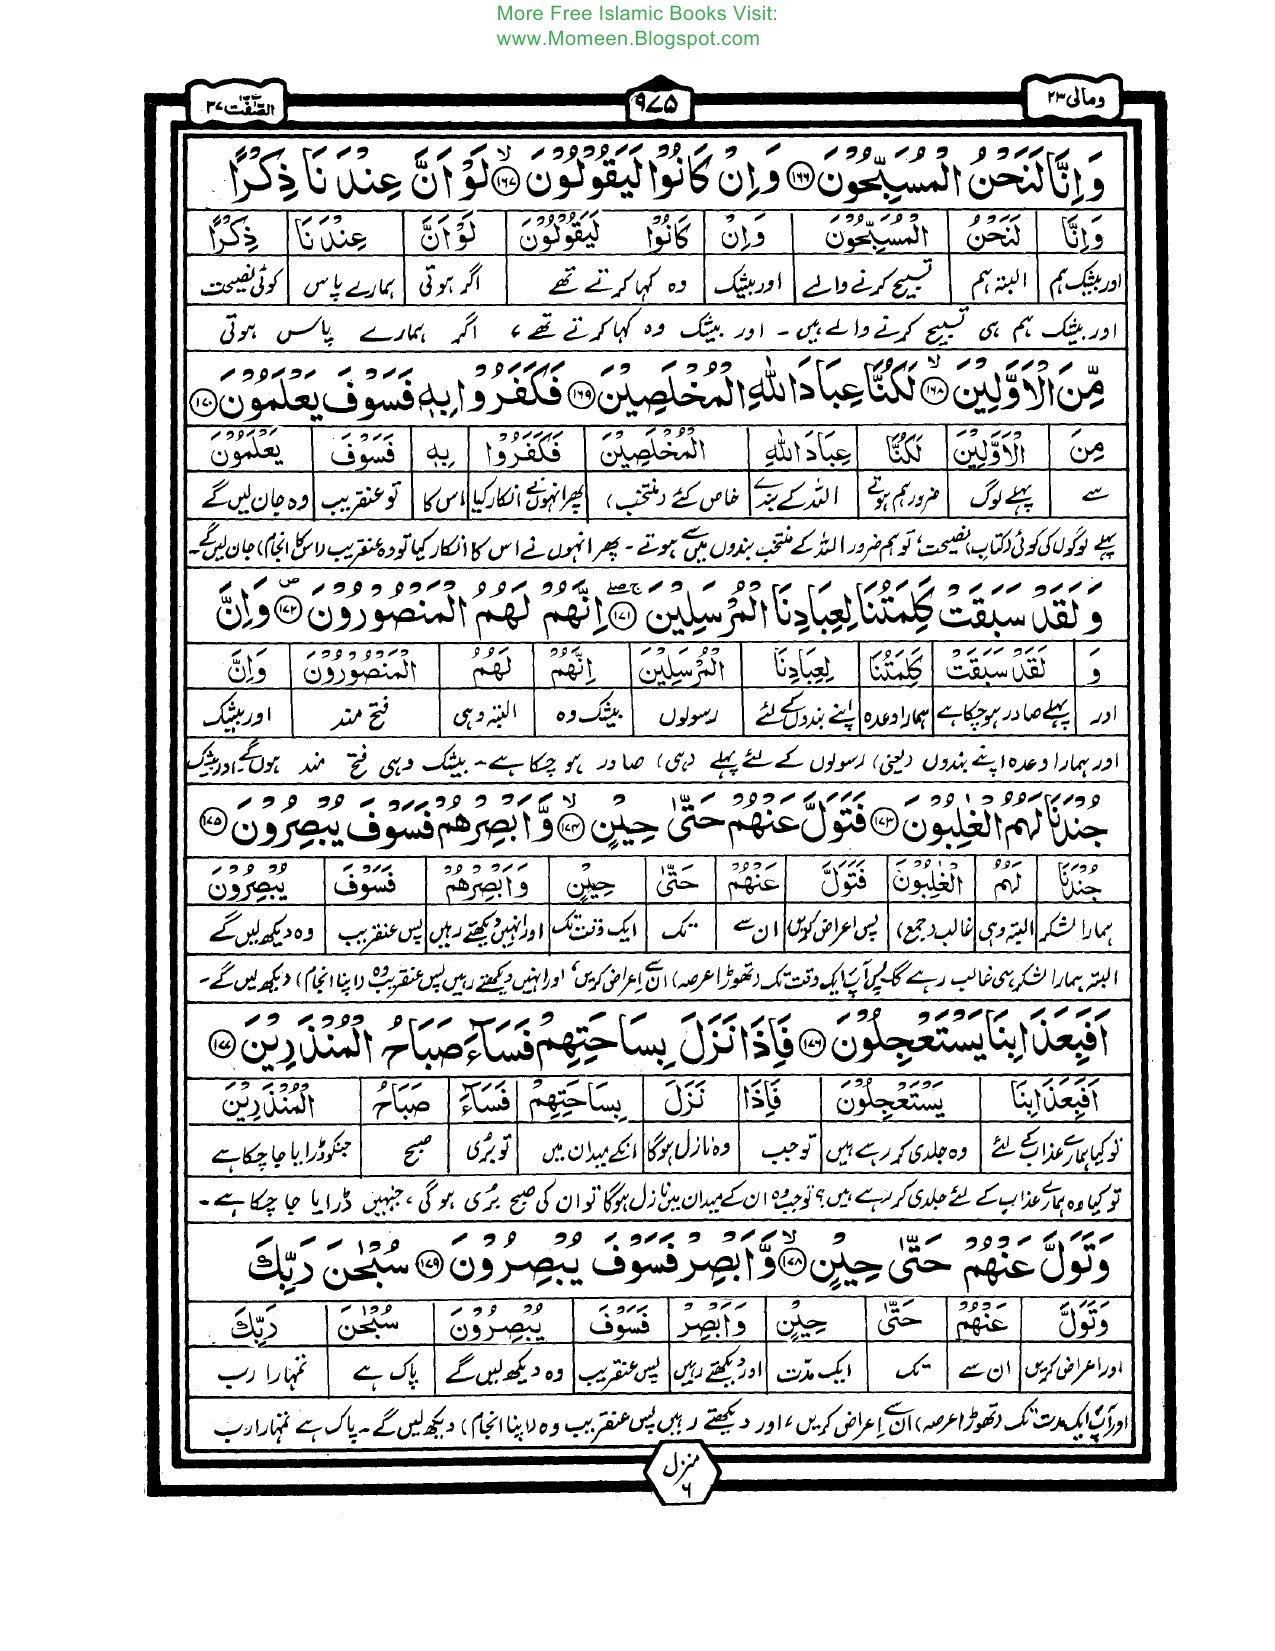 More Free Islamic Books Visit:
www.Momeen.Blogspot.com
ومالی ۲۳
۹۷۵
الصّٰٓفّٰت ۳۷
وَاِنَّا لَنَحْنُ الْمُسَبِّحُوْنَ ﴿۱۶۶﴾ وَاِنْ كَانُوْا لَيَقُوْلُوْنَ ۙ﴿۱۶۷﴾ لَوْ اَنَّ عِنْدَنَا ذِكْرًا
وَاِنَّا لَنَحْنُ الْمُسَبِّحُوْنَ وَاِنْ كَانُوْا لَيَقُوْلُوْنَ لَوْ اَنَّ عِنْدَنَا ذِكْرًا
اور بیشک ہم البتہ ہم تسبیح کرنے والے اور بیشک وہ کہا کرتے تھے اگر ہوتی ہمارے پاس کوئی نصیحت
اور بیشک ہم ہی تسبیح کرنے والے ہیں۔ اور بیشک وہ کہا کرتے تھے، اگر ہمارے پاس ہوتی
مِّنَ الْاَوَّلِيْنَ ۙ﴿۱۶۸﴾ لَكُنَّا عِبَادَ اللّٰهِ الْمُخْلَصِيْنَ ﴿۱۶۹﴾ فَكَفَرُوْا بِهٖ فَسَوْفَ يَعْلَمُوْنَ ﴿۱۷۰﴾
مِنَ الْاَوَّلِيْنَ لَكُنَّا عِبَادَ اللّٰهِ الْمُخْلَصِيْنَ فَكَفَرُوْا بِهٖ فَسَوْفَ يَعْلَمُوْنَ
سے پہلے لوگ ضرور ہم ہوتے اللہ کے بندے خاص کئے (منتخب) پھر انہوں نے انکار کیا اس کا تو عنقریب وہ جان لیں گے
پہلے لوگوں کی کوئی (کتاب) نصیحت، تو ہم ضرور اللہ کے منتخب بندوں میں سے ہوتے۔ پھر انہوں نے اس کا انکار کیا تو وہ عنقریب (اس کا انجام) جان لیں گے۔
وَلَقَدْ سَبَقَتْ كَلِمَتُنَا لِعِبَادِنَا الْمُرْسَلِيْنَ ﴿۱۷۱﴾ اِنَّهُمْ لَهُمُ الْمَنْصُوْرُوْنَ ۪﴿۱۷۲﴾ وَاِنَّ
وَ لَقَدْ سَبَقَتْ كَلِمَتُنَا لِعِبَادِنَا الْمُرْسَلِيْنَ اِنَّهُمْ لَهُمُ الْمَنْصُوْرُوْنَ وَاِنَّ
اور پہلے صادر ہو چکا ہے ہمارا وعدہ اپنے بندوں کے لئے رسولوں بیشک وہ البتہ وہی فتح مند اور بیشک
اور ہمارا وعدہ اپنے بندوں (یعنی) رسولوں کے لئے پہلے (ہی) صادر ہو چکا ہے۔ بیشک وہی فتح مند ہوں گے۔ اور بیشک
جُنْدَنَا لَهُمُ الْغٰلِبُوْنَ ﴿۱۷۳﴾ فَتَوَلَّ عَنْهُمْ حَتّٰى حِيْنٍ ۙ﴿۱۷۴﴾ وَّاَبْصِرْهُمْ فَسَوْفَ يُبْصِرُوْنَ ﴿۱۷۵﴾
جُنْدَنَا لَهُمُ الْغٰلِبُوْنَ فَتَوَلَّ عَنْهُمْ حَتّٰى حِيْنٍ وَاَبْصِرْهُمْ فَسَوْفَ يُبْصِرُوْنَ
ہمارا لشکر البتہ وہی غالب (جمع) پس اعراض کریں ان سے تک ایک وقت تک اور انہیں دیکھتے رہیں پس عنقریب وہ دیکھ لیں گے
البتہ ہمارا لشکر ہی غالب رہے گا۔ پس آپ ایک وقت تک (تھوڑا عرصہ) ان سے اعراض کریں، اور انہیں دیکھتے رہیں پس عنقریب وہ (اپنا انجام) دیکھ لیں گے۔
اَفَبِعَذَابِنَا يَسْتَعْجِلُوْنَ ﴿۱۷۶﴾ فَاِذَا نَزَلَ بِسَاحَتِهِمْ فَسَآءَ صَبَاحُ الْمُنْذَرِيْنَ ﴿۱۷۷﴾
اَفَبِعَذَابِنَا يَسْتَعْجِلُوْنَ فَاِذَا نَزَلَ بِسَاحَتِهِمْ فَسَآءَ صَبَاحُ الْمُنْذَرِيْنَ
تو کیا ہمارے عذاب کے لئے وہ جلدی کر رہے ہیں تو جب وہ نازل ہوگا انکے میدان میں تو بُری صبح جنکو ڈرایا جا چکا ہے
تو کیا وہ ہمارے عذاب کے لئے جلدی کر رہے ہیں؟ تو جب وہ ان کے میدان میں نازل ہوگا تو ان کی صبح بُری ہو گی، جنہیں ڈرایا جا چکا ہے۔
وَتَوَلَّ عَنْهُمْ حَتّٰى حِيْنٍ ۙ﴿۱۷۸﴾ وَّاَبْصِرْ فَسَوْفَ يُبْصِرُوْنَ ﴿۱۷۹﴾ سُبْحٰنَ رَبِّكَ
وَتَوَلَّ عَنْهُمْ حَتّٰى حِيْنٍ وَاَبْصِرْ فَسَوْفَ يُبْصِرُوْنَ سُبْحٰنَ رَبِّكَ
اور اعراض کریں ان سے تک ایک مدّت اور دیکھتے رہیں پس عنقریب وہ دیکھ لیں گے پاک ہے تمہارا رب
اور آپ ایک مدت تک (تھوڑا عرصہ) ان سے اعراض کریں، اور دیکھتے رہیں پس عنقریب وہ (اپنا انجام) دیکھ لیں گے۔ پاک ہے تمہارا رب
منزل ۶